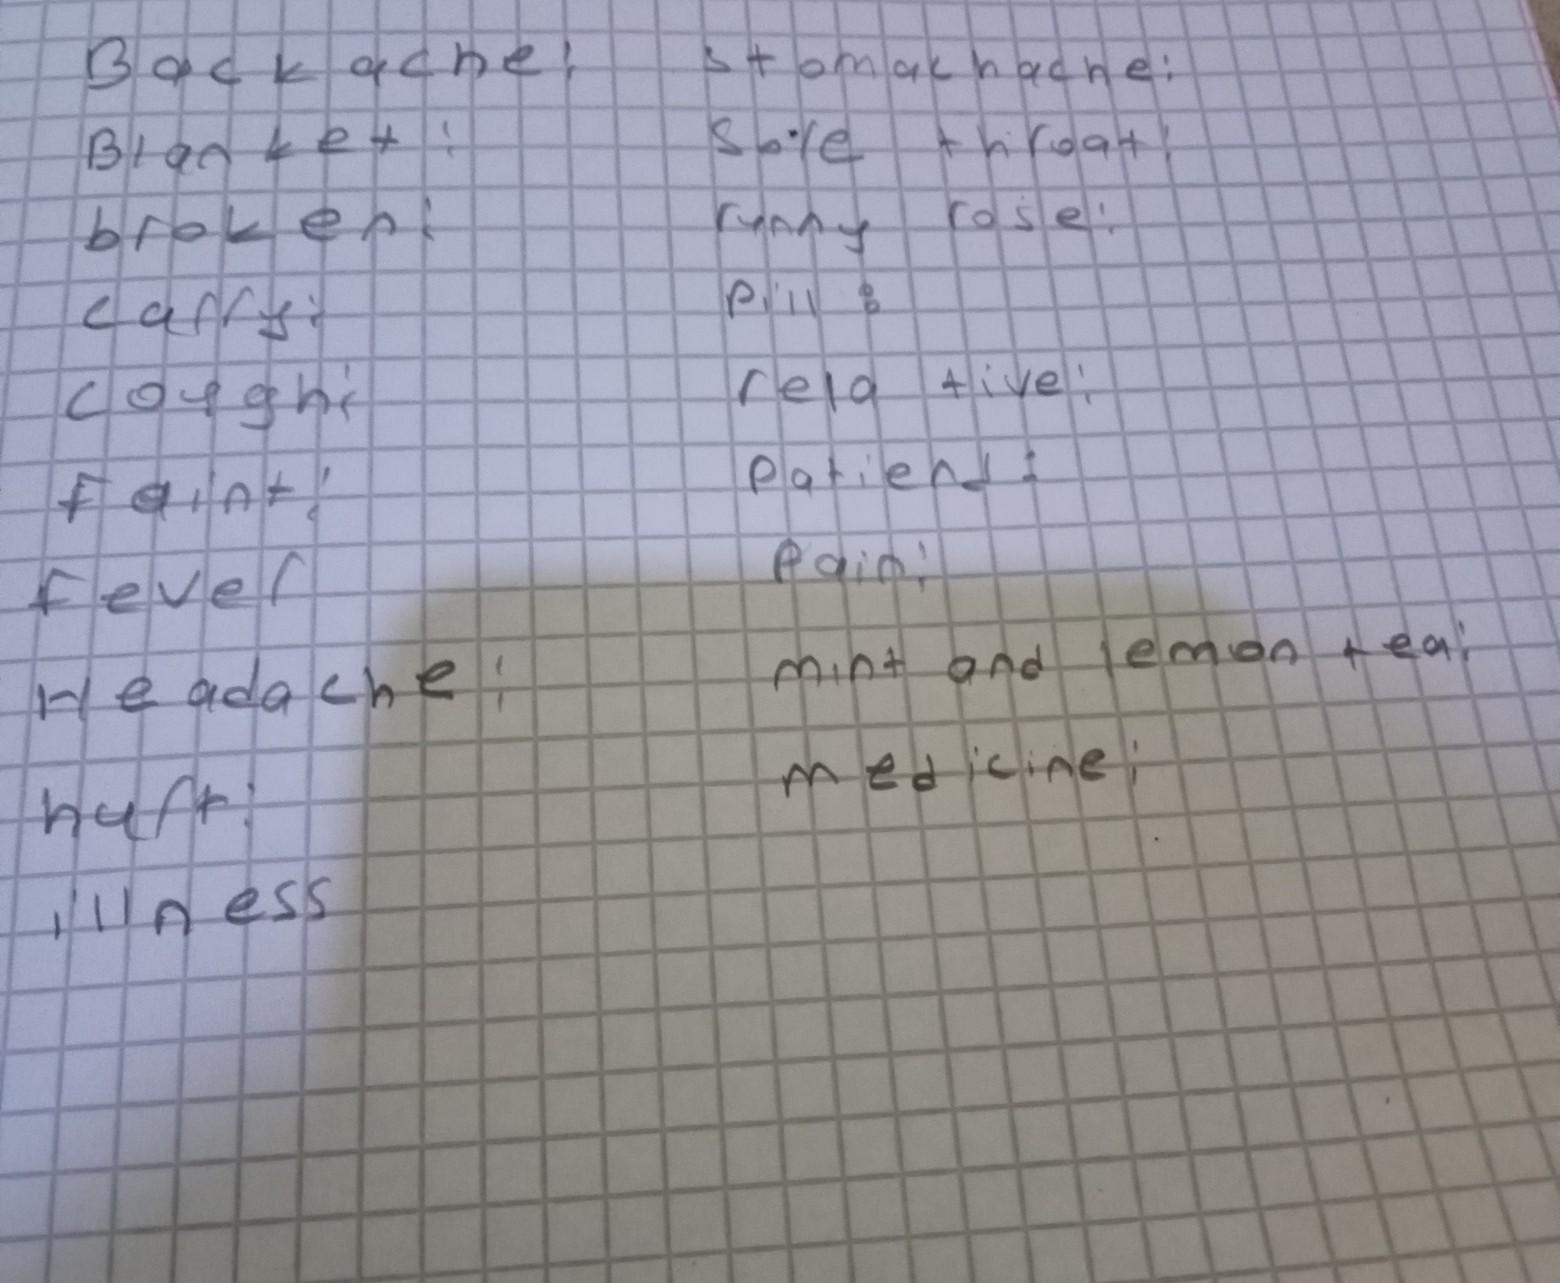 Backache:
Blanket:
broken:
carry:
cough:
Faint:
Fever
Headache:
hurt:
illness
stomachache:
Sore throat:
runny rose:
Pill:
relative:
Patient:
Pain:
mint and lemon tea:
medicine: